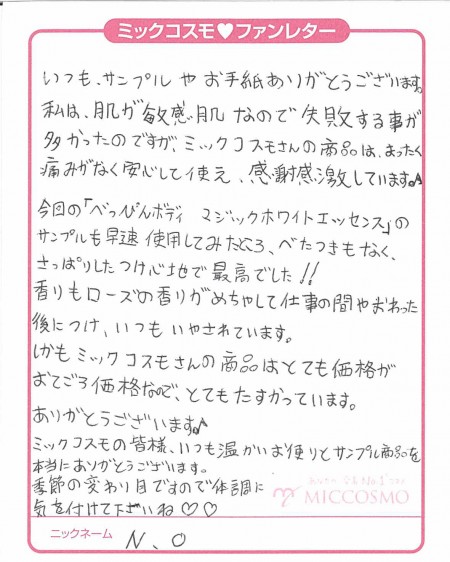 ミックコスモ♥ファンレター
いつも、サンプルやお手紙ありがとうございます。
私は、肌が敏感肌なので失敗する事が
多かったのですが、ミックコスモさんの商品は、まったく
痛みがなく安心して使え、感謝感激しています。♪
今回の「べっぴんボディ マジックホワイトエッセンス」の
サンプルも早速使用してみたところ、べたつきもなく、
さっぱりしたつけ心地で最高でした!!
香りもローズの香りがめちゃして仕事の間やおわった
後につけ、いつもいやされています。
しかもミックコスモさんの商品はとても価格が
おてごろ価格なので、とてもたすかっています。
ありがとうございます。♪
ミックコスモの皆様、いつも温かいお便りとサンプル商品を
本当にありがとうございます。
季節の変わり目ですので体調に
気を付けて下さいね♡♡
MICCOSMO
ニックネーム N.O